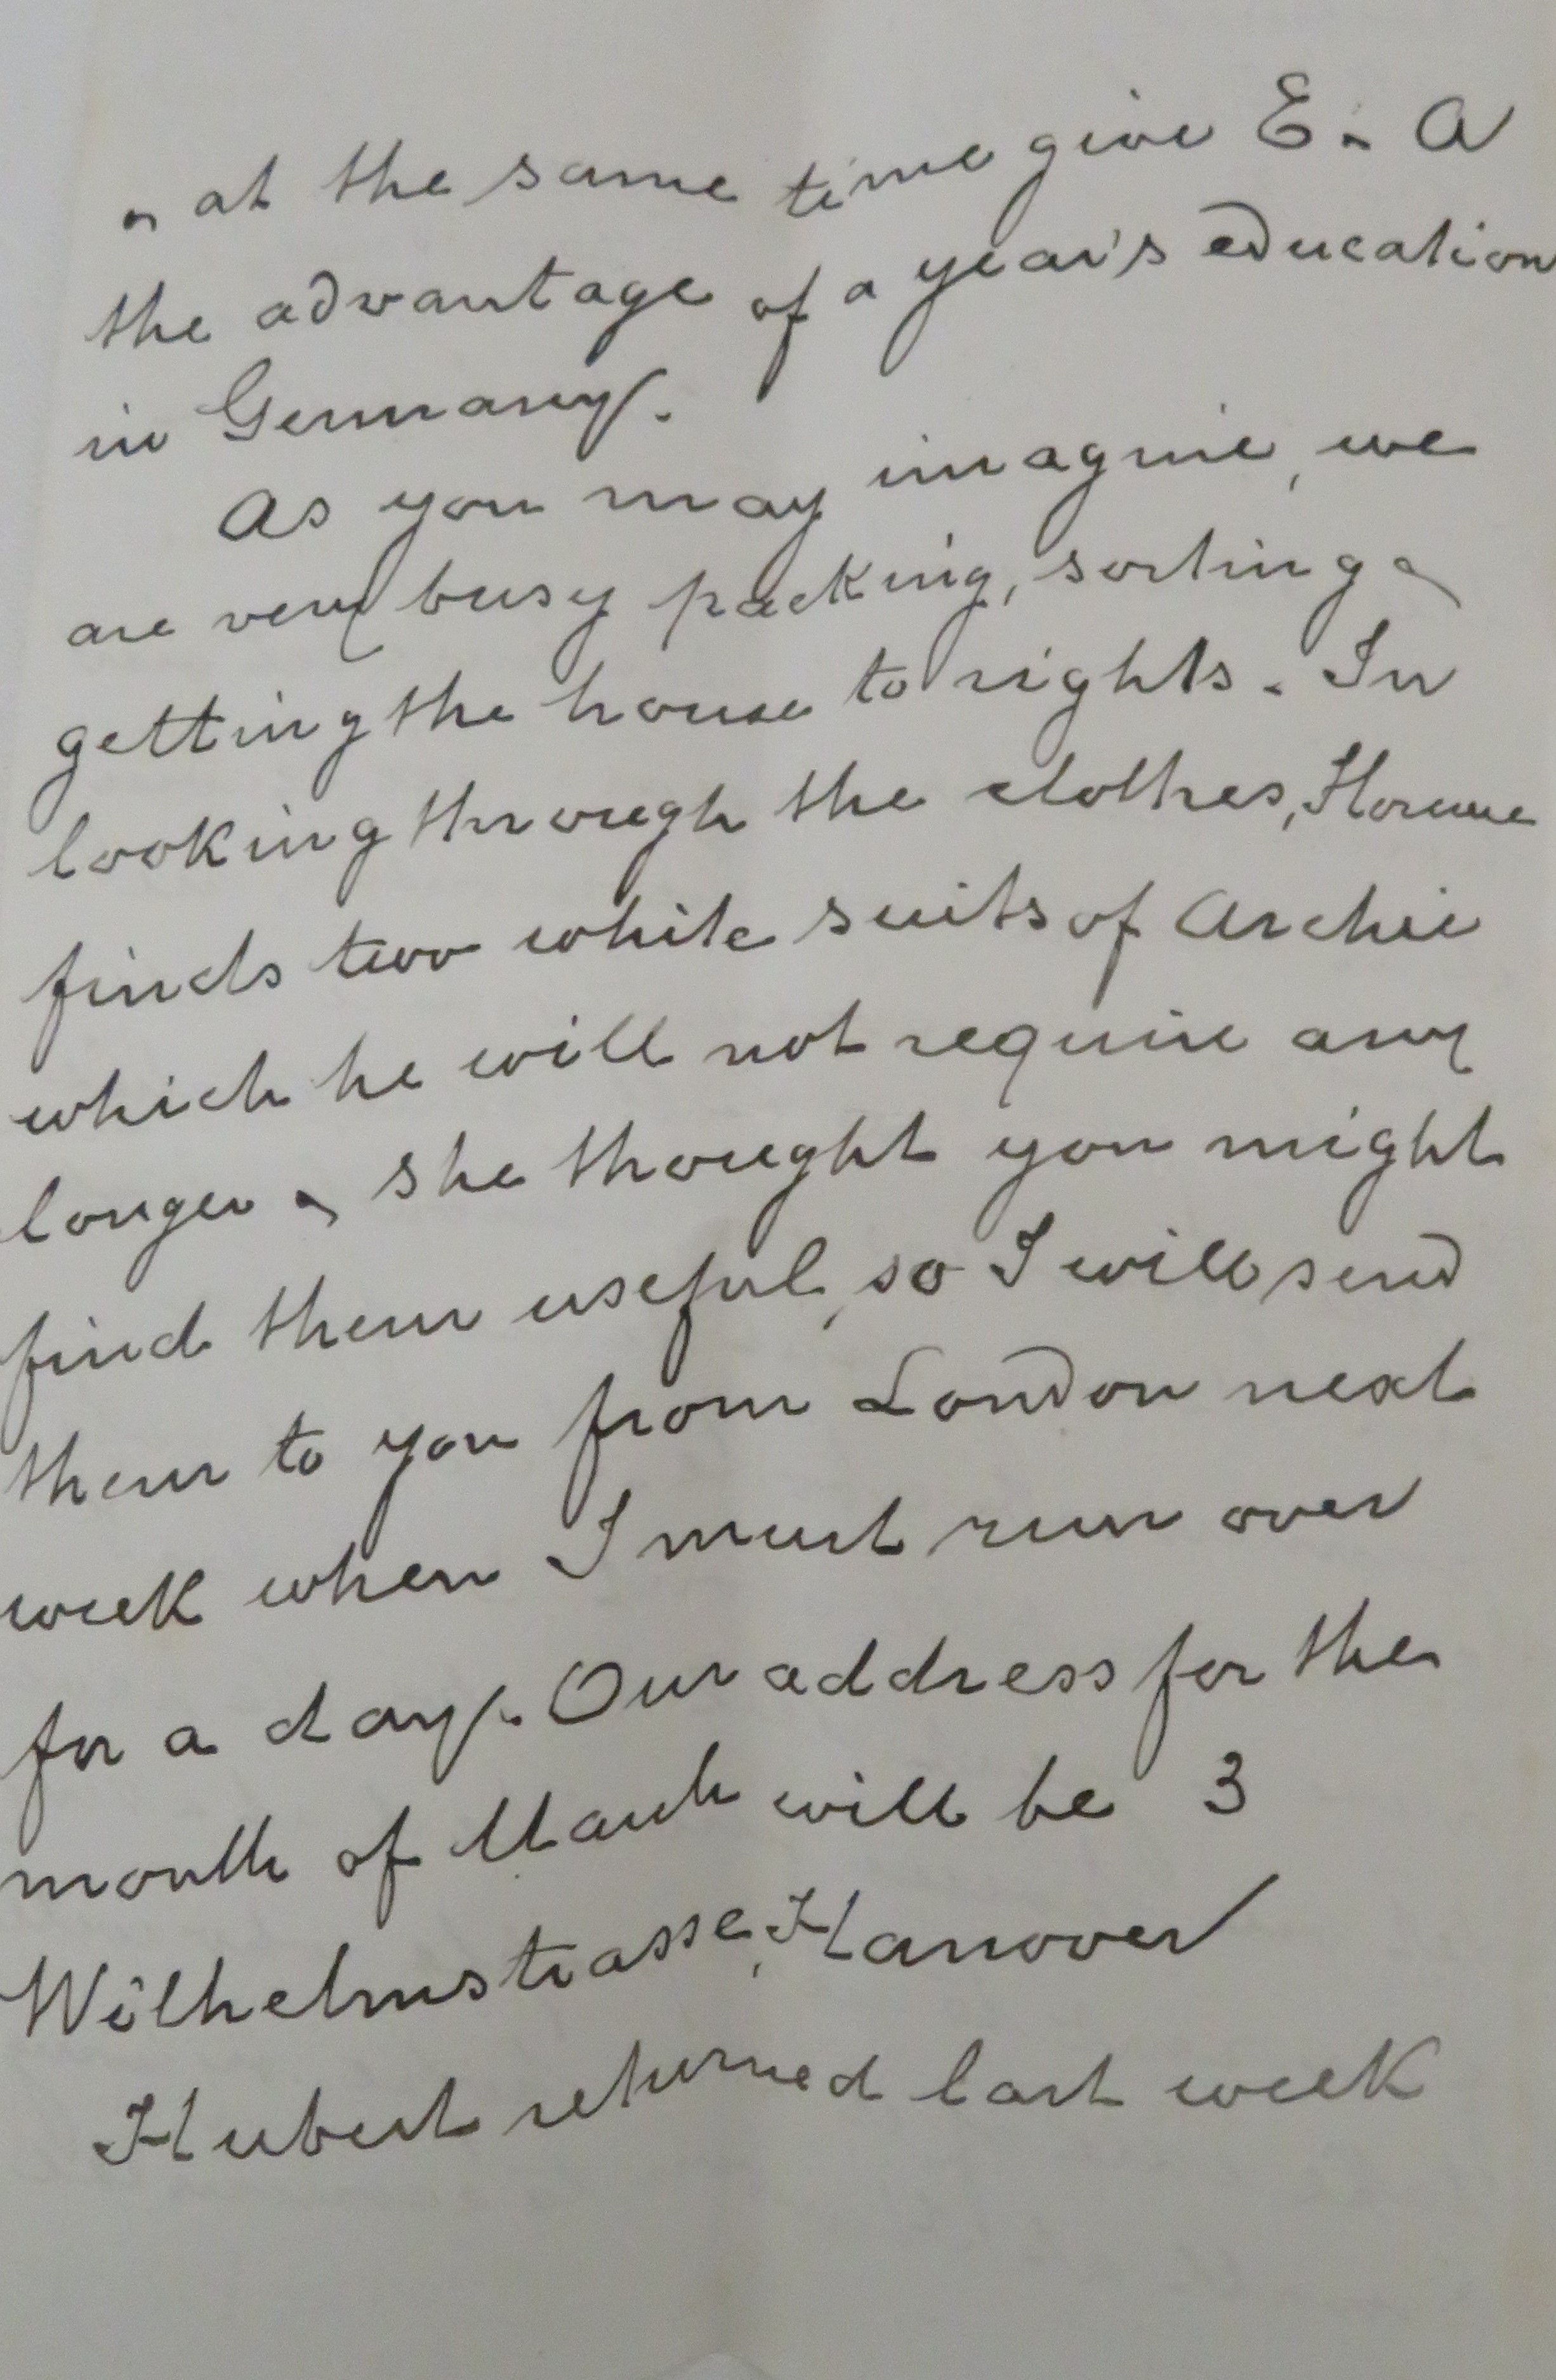 & at the same time give E. & A
the advantage of a year's education
in Germany.
As you may imagine, we
are very busy packing, sorting &
getting the house to rights. In
looking through the clothes, Florence
finds two white suits of Archie
which he will not require any
longer & she thought you might
find them useful, so I will send
them to you from London next
week when I must run over
for a day. Our address for the
month of March will be 3
Wilhelmstrasse, Hanover
Hubert returned last week